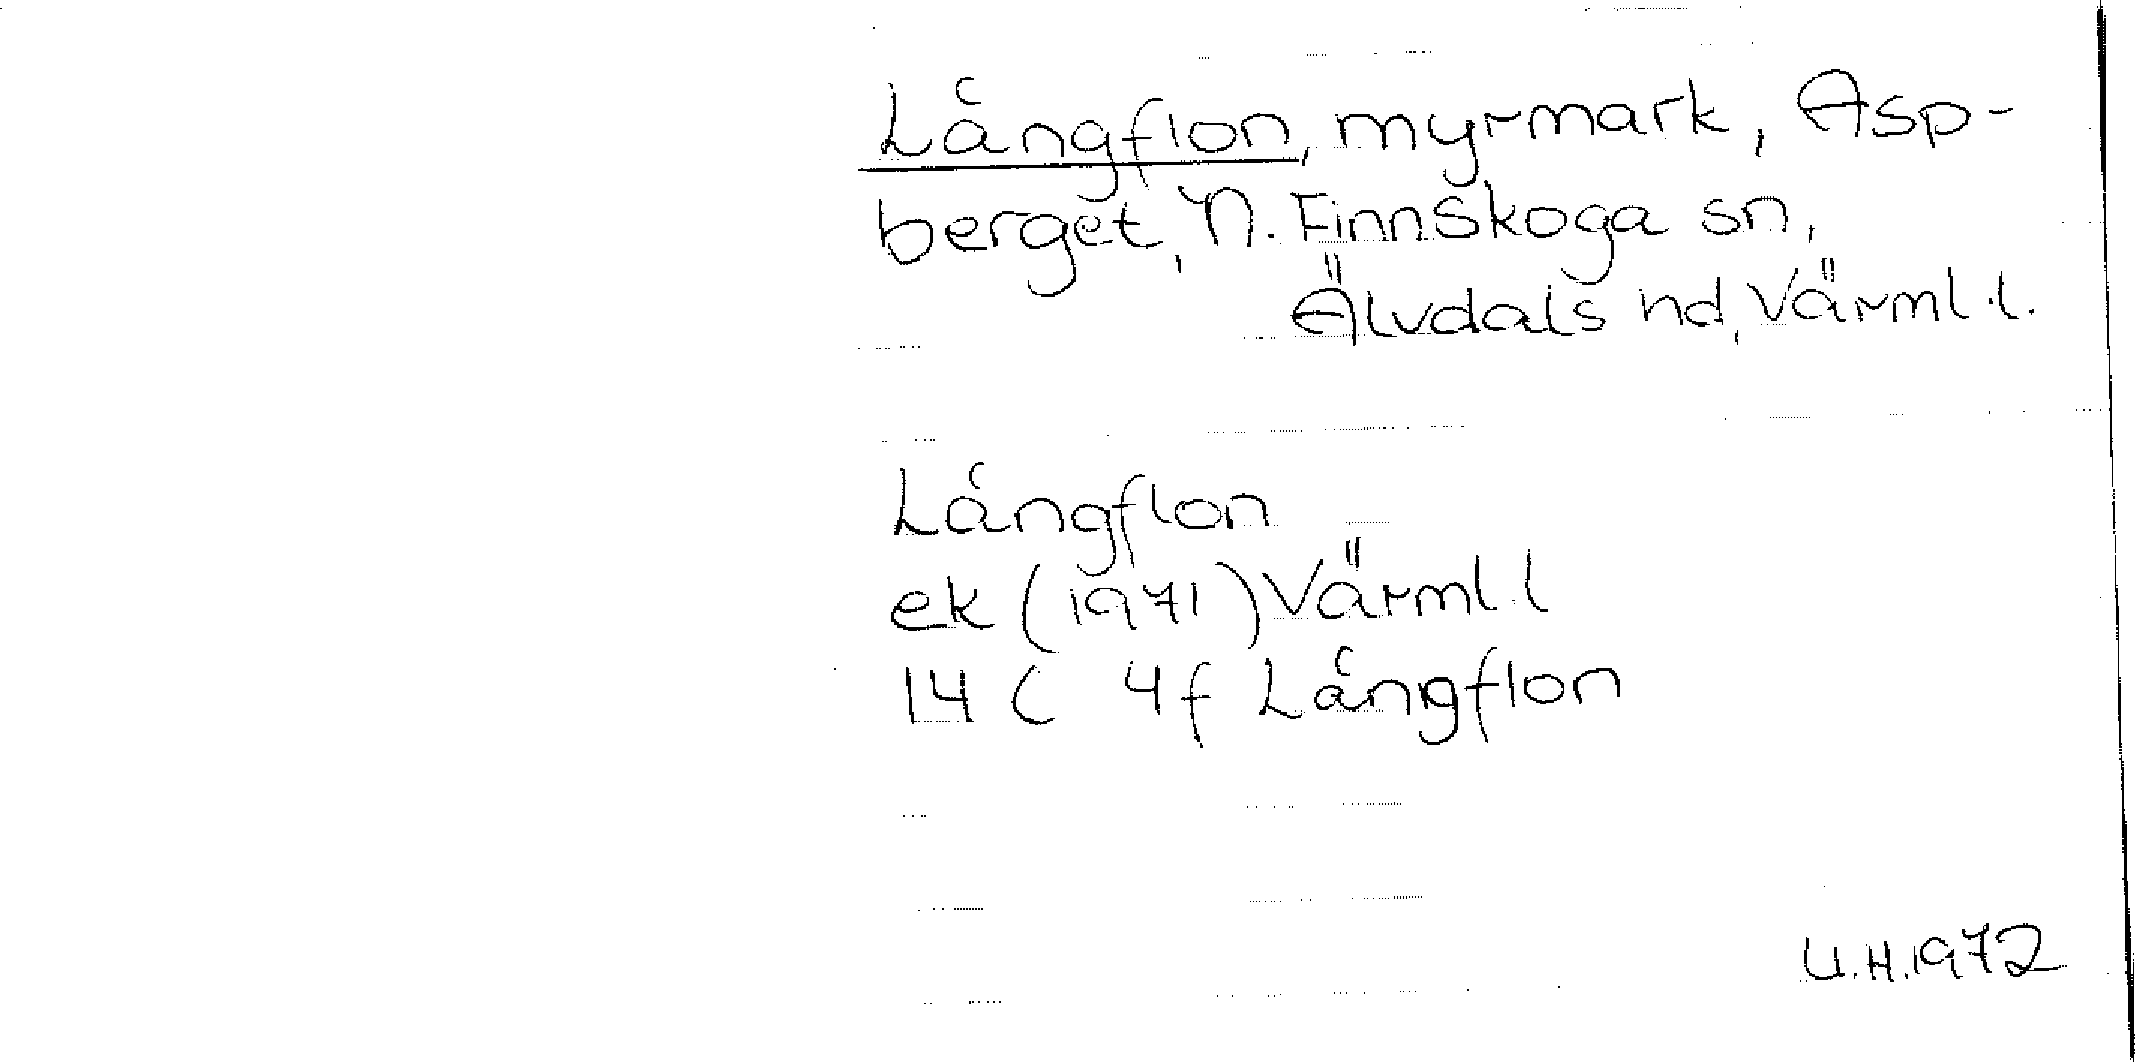 Långflon, myrmark, Asp-
berget, N. Finnskoga sn,
Älvdals hd, Värml.l.
Långflon
ek (1971) Värml.l
14 C 4f Långflon
U.H.1972